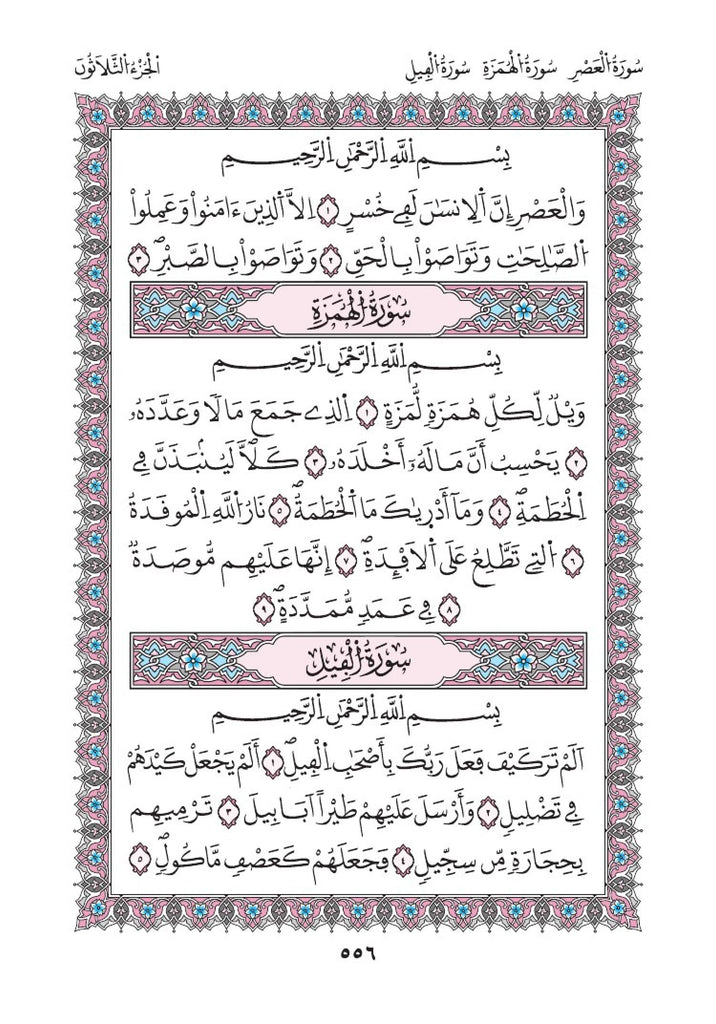 سُورَةُ الْعَصْرِ سُورَةُ الْهُمَزَةِ سُورَةُ الْفِيلِ
الْجُزْءُ الثَّلَاثُونَ
بِسْمِ اللَّهِ الرَّحْمَٰنِ الرَّحِيمِ
وَالْعَصْرِ إِنَّ اَلِانسَٰنَ لَفِے خُسْرٍ ١ اِلَّا اَلذِينَ ءَامَنُواْ وَعَمِلُواْ
اُلصَّٰلِحَٰتِ وَتَوَاصَوْاْ بِالْحَقِّ ٢ وَتَوَاصَوْاْ بِالصَّبْرِۖ ٣
سُورَةُ الْهُمَزَةِ
بِسْمِ اللَّهِ الرَّحْمَٰنِ الرَّحِيمِ
وَيْلٌ لِّكُلِّ هُمَزَةٍ لُّمَزَةٍ ١ اِلذِے جَمَعَ مَالًا وَعَدَّدَهُۥ
٢ يَحْسِبُ أَنَّ مَالَهُۥٓ أَخْلَدَهُۥ ٣ كَلَّاۖ لَيُنۢبَذَنَّ فِے
اِلْحُطَمَةِۖ ٤ وَمَآ أَدْر۪ىٰكَ مَا اَلْحُطَمَةُۖ ٥ نَارُ اُللَّهِ اِلْمُوقَدَةُ
٦ اُلتِے تَطَّلِعُ عَلَى اَلَافْـِٕدَةِۖ ٧ إِنَّهَا عَلَيْهِم مُّوصَدَةٌ
٨ فِے عَمَدٍ مُّمَدَّدَةٍۖ ٩
سُورَةُ الْفِيلِ
بِسْمِ اللَّهِ الرَّحْمَٰنِ الرَّحِيمِ
اَلَمْ تَرَ كَيْفَ فَعَلَ رَبُّكَ بِأَصْحَٰبِ اِلْفِيلِۖ ١ أَلَمْ يَجْعَلْ كَيْدَهُمْ
فِے تَضْلِيلٍ ٢ وَأَرْسَلَ عَلَيْهِمْ طَيْراً اَبَابِيلَ ٣ تَرْمِيهِم
بِحِجَارَةٍ مِّن سِجِّيلٍ ٤ فَجَعَلَهُمْ كَعَصْفٍ مَّاكُولٍۖ ٥
٥٥٦